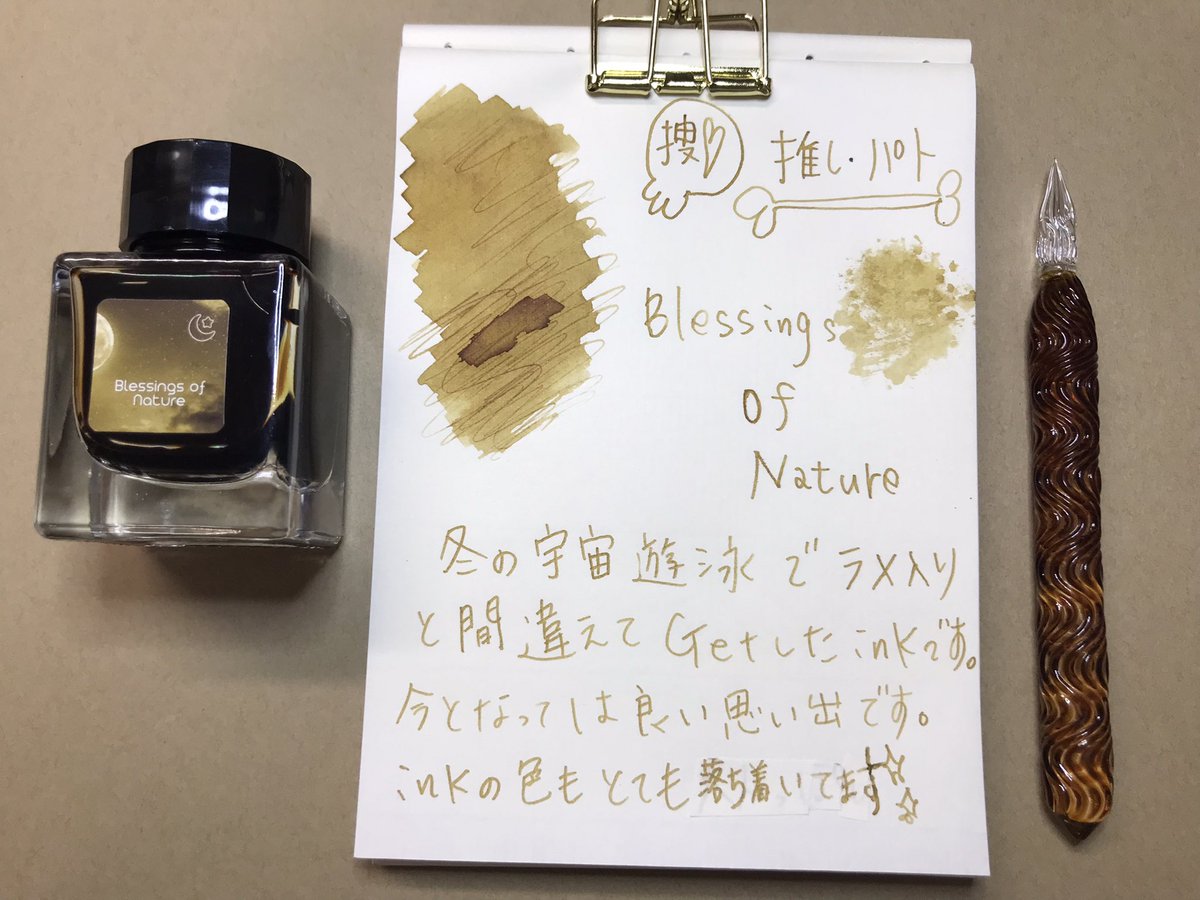 Blessings of
Nature
捜
推し・パト
Blessings
of
Nature
冬の宇宙遊泳でラメ入り
と間違えてGetしたinkです。
今となっては良い思い出です。
inkの色もとても落ち着いてます